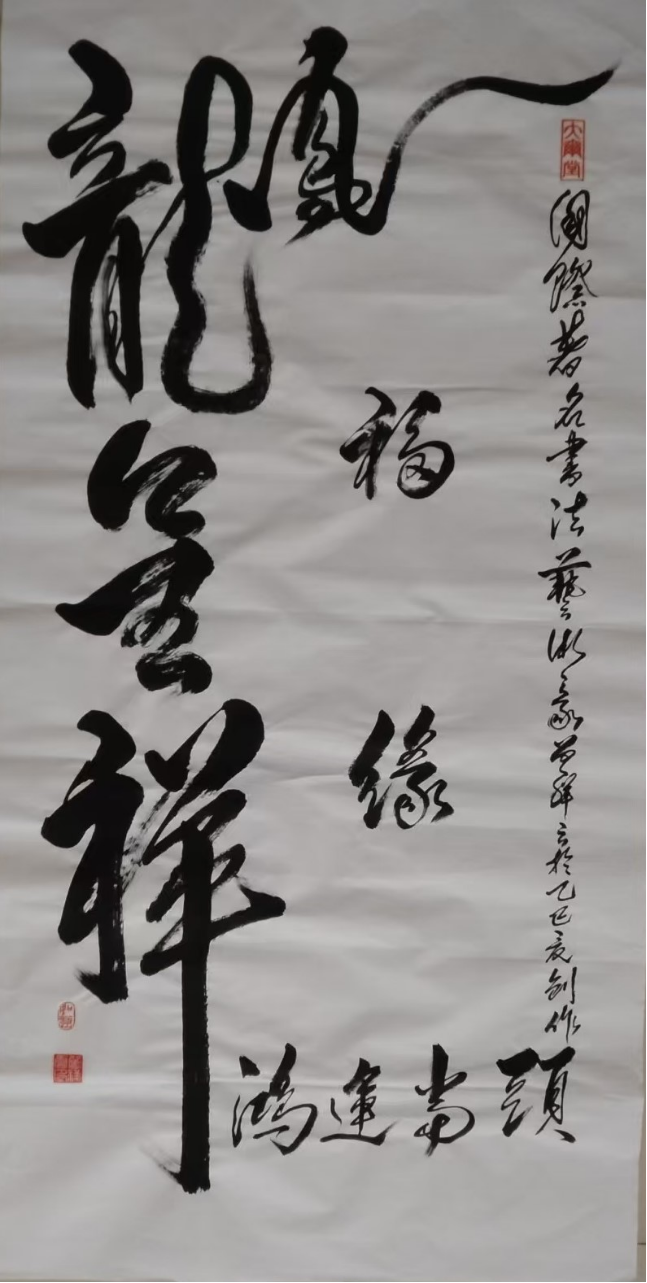 龍鳳呈祥
福緣
鴻運當頭
國際著名書法藝術家曾祥云於乙巳夏創作